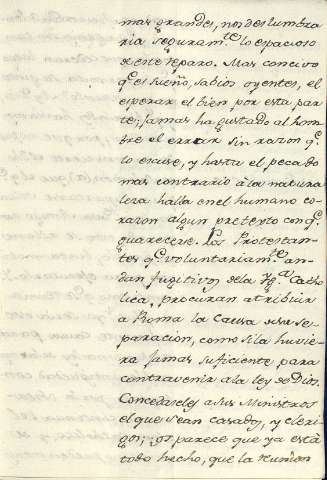 mas grandes, nos deslumbra
ria seguram.te lo espacioso
de este reparo. Mas concivo
q.e es sueño, sabios oyentes, el
esperar el bien por esta par
te; jamas ha gustado al hom
bre el errar sin razon q.e
lo escuse, y hasta el pecado
mas contrario à la natura
leza halla en el humano co
razon algun pretexto con q.e
guarecerse. Los Protestan
tes q.e voluntariam.te an
dan fugitivos de la Yg.a Catho
lica, procuran atribuir
a Roma la Causa de su se
paracion, como si la huvie
ra jamas suficiente para
contravenir a la ley de Dios.
Concedaseles a sus Ministros
el que sean casados, y cleri
gos; os parece que ya està
todo hecho, que la reunion